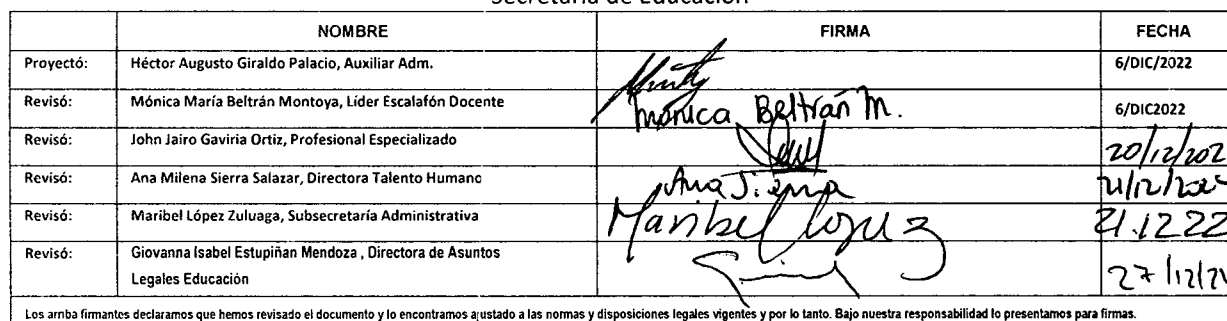 Secretaría de Educación
NOMBRE FIRMA FECHA
Proyectó: Héctor Augusto Giraldo Palacio, Auxiliar Adm. 6/DIC/2022
Revisó: Mónica María Beltrán Montoya, Líder Escalafón Docente Mónica Beltrán M. 6/DIC2022
Revisó: John Jairo Gaviria Ortiz, Profesional Especializado 20/12/202
Revisó: Ana Milena Sierra Salazar, Directora Talento Humano Ana Sierra
Revisó: Maribel López Zuluaga, Subsecretaría Administrativa Maribel López 21.12.22
Revisó: Giovanna Isabel Estupiñan Mendoza , Directora de Asuntos
Legales Educación 27/12/2
Los arriba firmantes declaramos que hemos revisado el documento y lo encontramos ajustado a las normas y disposiciones legales vigentes y por lo tanto. Bajo nuestra responsabilidad lo presentamos para firmas.